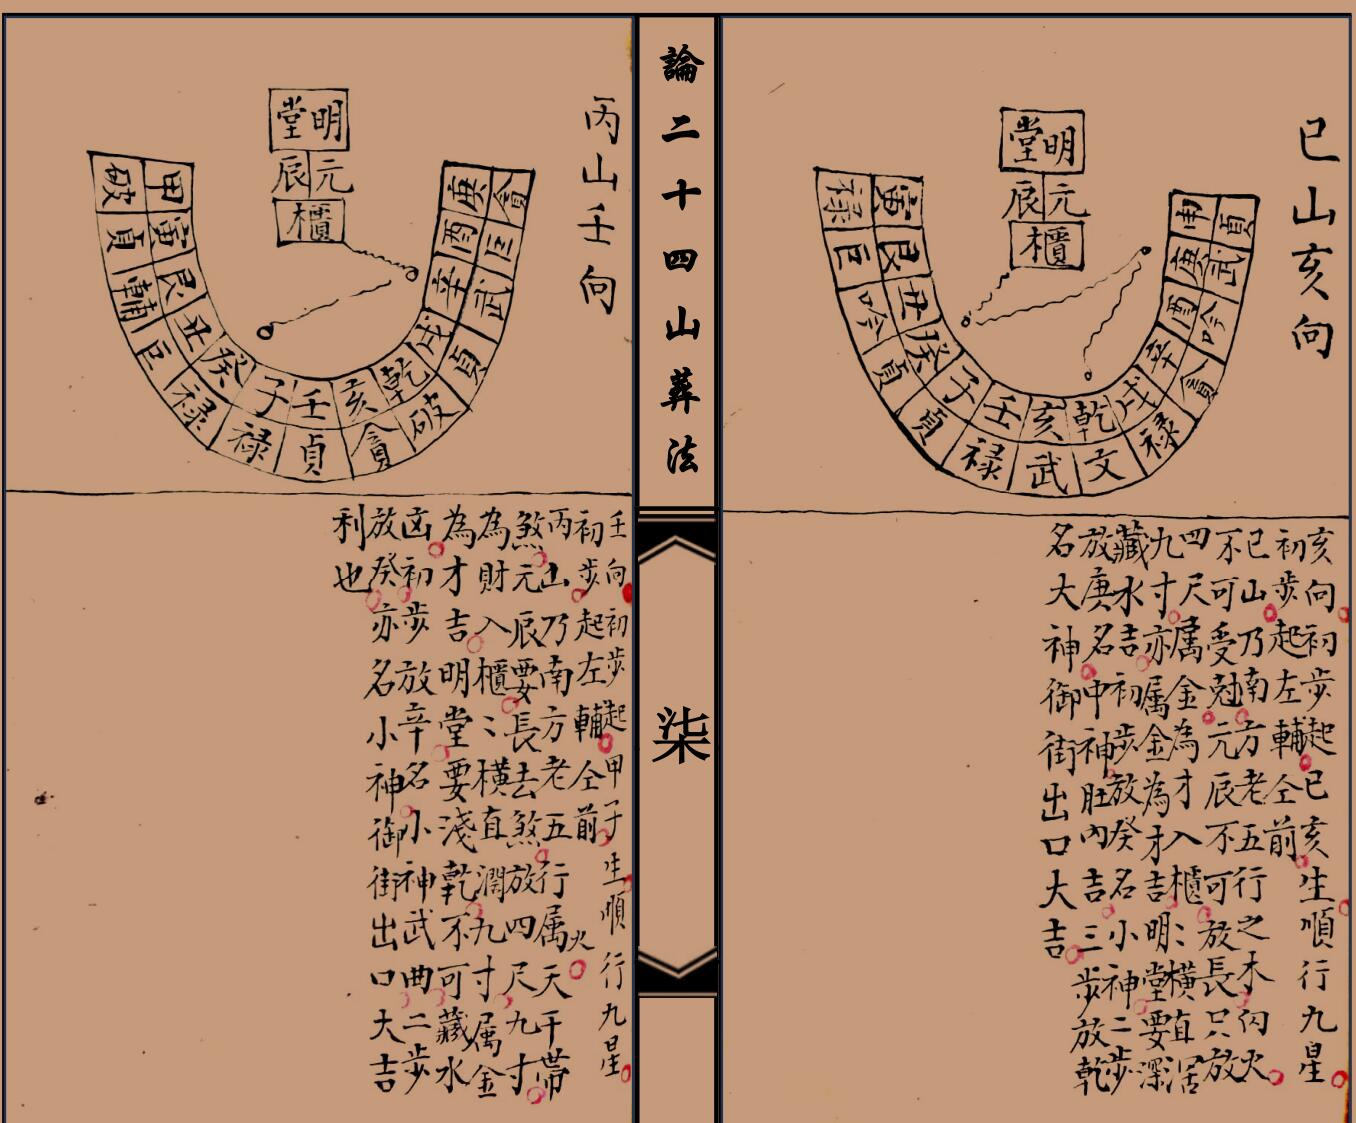 巳山亥向
明堂
元辰
櫃
寅 艮 丑 癸 子 壬 亥 乾 戌 辛 酉 庚 申
禄 巨 吟 貞 貞 禄 武 文 禄 貪 吟 武 貞
亥向初步起巳亥生順行九星
初步起左輔仝前
巳山乃南方老五行之木向火
不可受尅元辰不可放長只放
四尺属金為才入櫃〻横直濶
九寸亦属金為才吉明堂要深
藏水吉初步放癸名小神二步
放庚名中神肚內吉三步放乾
名大神御街出口大吉
論二十四山葬法
柒
丙山壬向
明堂
元辰
櫃
甲 寅 艮 丑 癸 子 壬 亥 乾 戌 辛 酉 庚
破 貞 輔 巨 禄 禄 貞 貪 破 貞 武 巨 貪
壬向初步起甲子生順行九星
初步起左輔仝前
丙山乃南方老五行属火天干帶
煞元辰要長去煞放四尺九寸
為財入櫃〻横直濶九寸属金
為才吉明堂要淺乾不可藏水
凶初步放辛名小神武曲二步
放癸亦名小神御街出口大吉
利也